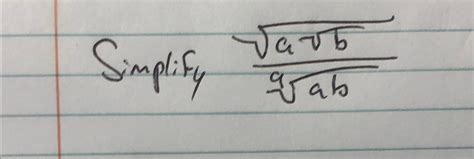 Simplify √(a√b)
√(ab)